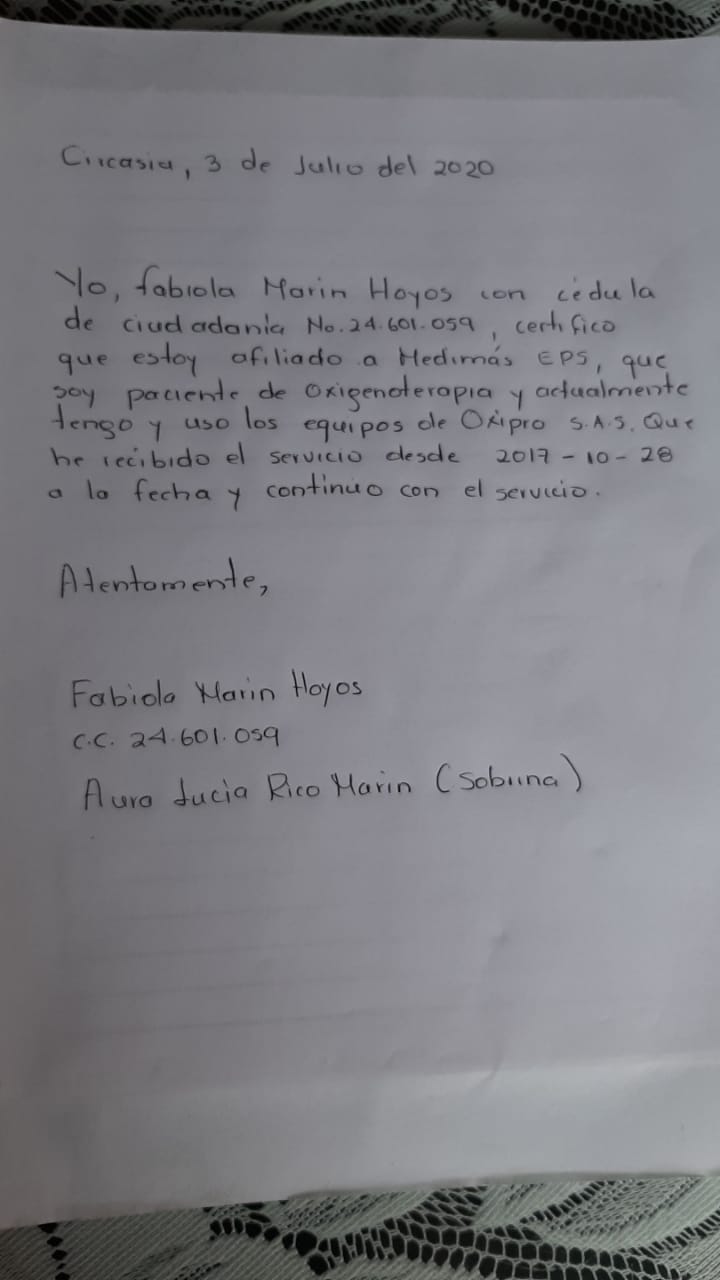 Circasia, 3 de Julio del 2020
Yo, fabiola Marin Hoyos con cédula
de ciudadanía No. 24.601.059, certifico
que estoy afiliado a Medimás EPS, que
soy paciente de Oxigenoterapia y actualmente
tengo y uso los equipos de Oxipro S.A.S. Que
he recibido el servicio desde 2017-10-28
a la fecha y continúo con el servicio.
Atentamente,
Fabiola Marin Hoyos
C.C. 24.601.059
Aura Lucia Rico Marin (Sobrina)